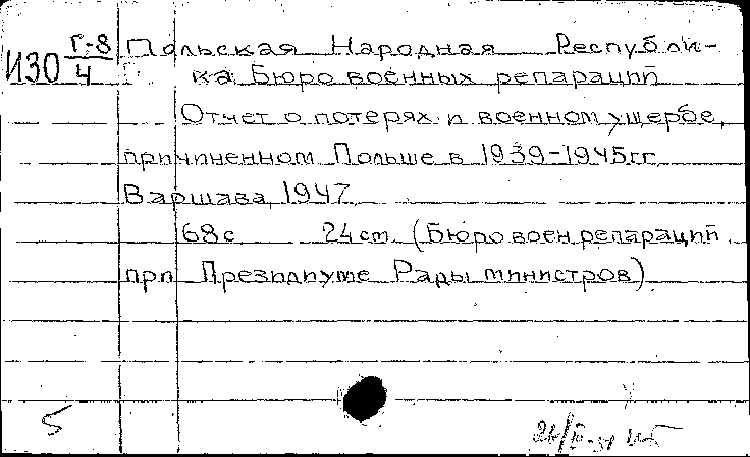 ИЗО Г-8/4
Польская Народная Республи-
ка Бюро военных репараций
Отчет о потерях и военном ущербе,
причиненном Польше в 1939-1945гг.
Варшава, 1947
68с 24ст. (Бюро воен.репараций
при Президиуме Рады министров)
5